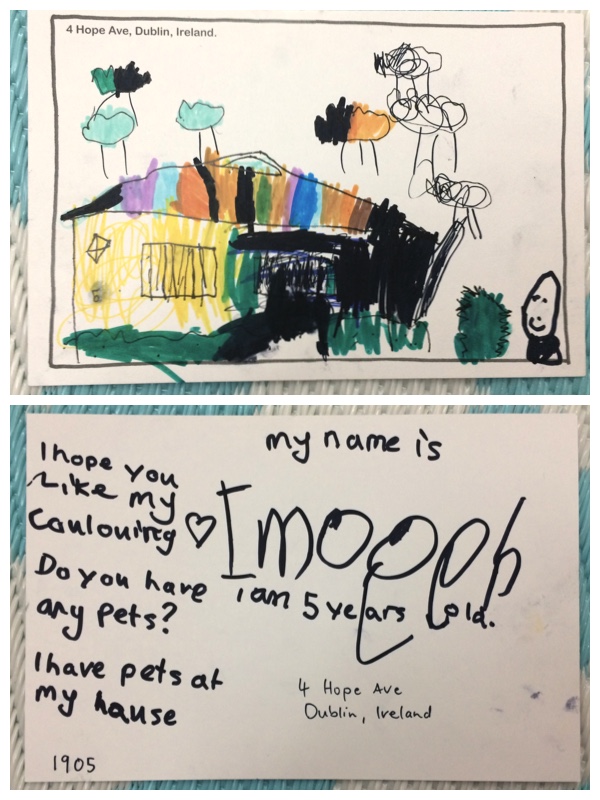 4 Hope Ave, Dublin, Ireland.
my name is
i am 5 years old.
I hope you
Like my
Caulouring ♡
Do you have
any Pets?
I have pets at
my hause
4 Hope Ave
Dublin, Ireland
1905